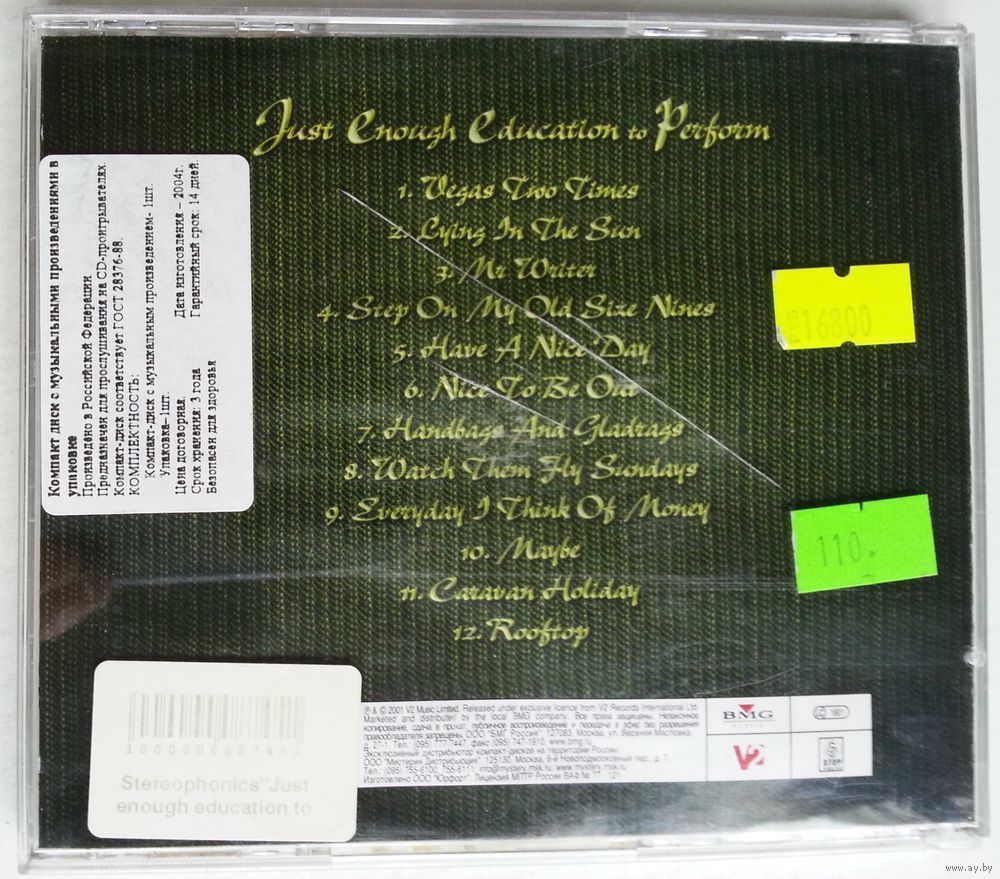 Just Enough Education to Perform
1. Vegas Two Times
2. Lying In The Sun
3. Mr Writer
4. Step On My Old Size Nines
5. Have A Nice Day
6. Nice To Be Out
7. Handbags And Gladrags
8. Watch Them Fly Sundays
9. Everyday I Think Of Money
10. Maybe
11. Caravan Holiday
12. Rooftop
Компакт диск с музыкальными произведениями в
упаковке
Произведено в Российской Федерации
Предназначен для прослушивания на CD-проигрывателях.
Компакт-диск соответствует ГОСТ 28376-88.
КОМПЛЕКТНОСТЬ:
Компакт-диск с музыкальным произведением- 1шт.
Упаковка–1шт.
Цена договорная. Дата изготовления – 2004г.
Срок хранения: 3 года Гарантийный срок: 14 дней.
Безопасен для здоровья
16800
110.
Stereophonics"Just
enough education to
℗ & © 2001 V2 Music Limited. Released under exclusive licence from V2 Records International Ltd.
Marketed and distributed by the local BMG company. Все права защищены. Незаконное
копирование, сдача в прокат, публичное воспроизведение и передача в эфир без разрешения
правообладателя запрещены. ООО "БМГ Россия", 127083, Москва, ул. Верхняя Масловка,
д. 27-1. Тел.: (095) 777-7447, факс (095) 747-1910, www.bmg.ru
Эксклюзивный дистрибьютор компакт-дисков на территории России:
ООО "Мистерия Дистрибьюция", 125130, Москва, 6-й Новоподмосковный пер., д. 7.
info@mystery.msk.ru, www.mystery.msk.ru
Изготовлено ООО Лицензия МПТР России ВАФ № 77 - 121
BMG
RUSSIA
V2
STEP
www.ay.by